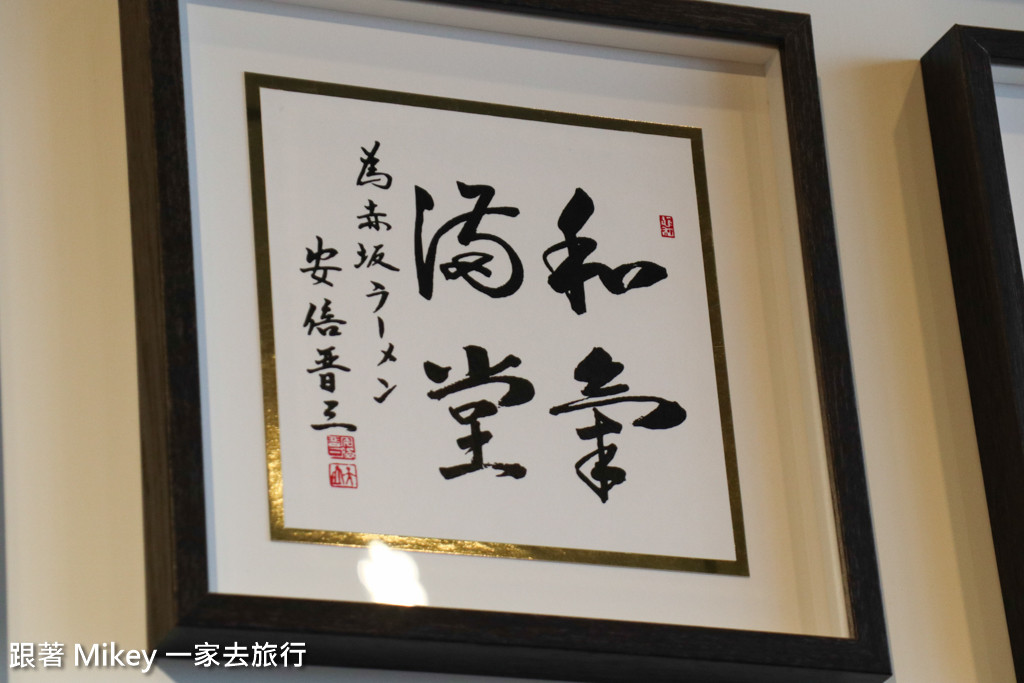 和氣
滿堂
為赤坂ラーメン
安倍晋三
跟著 Mikey 一家去旅行